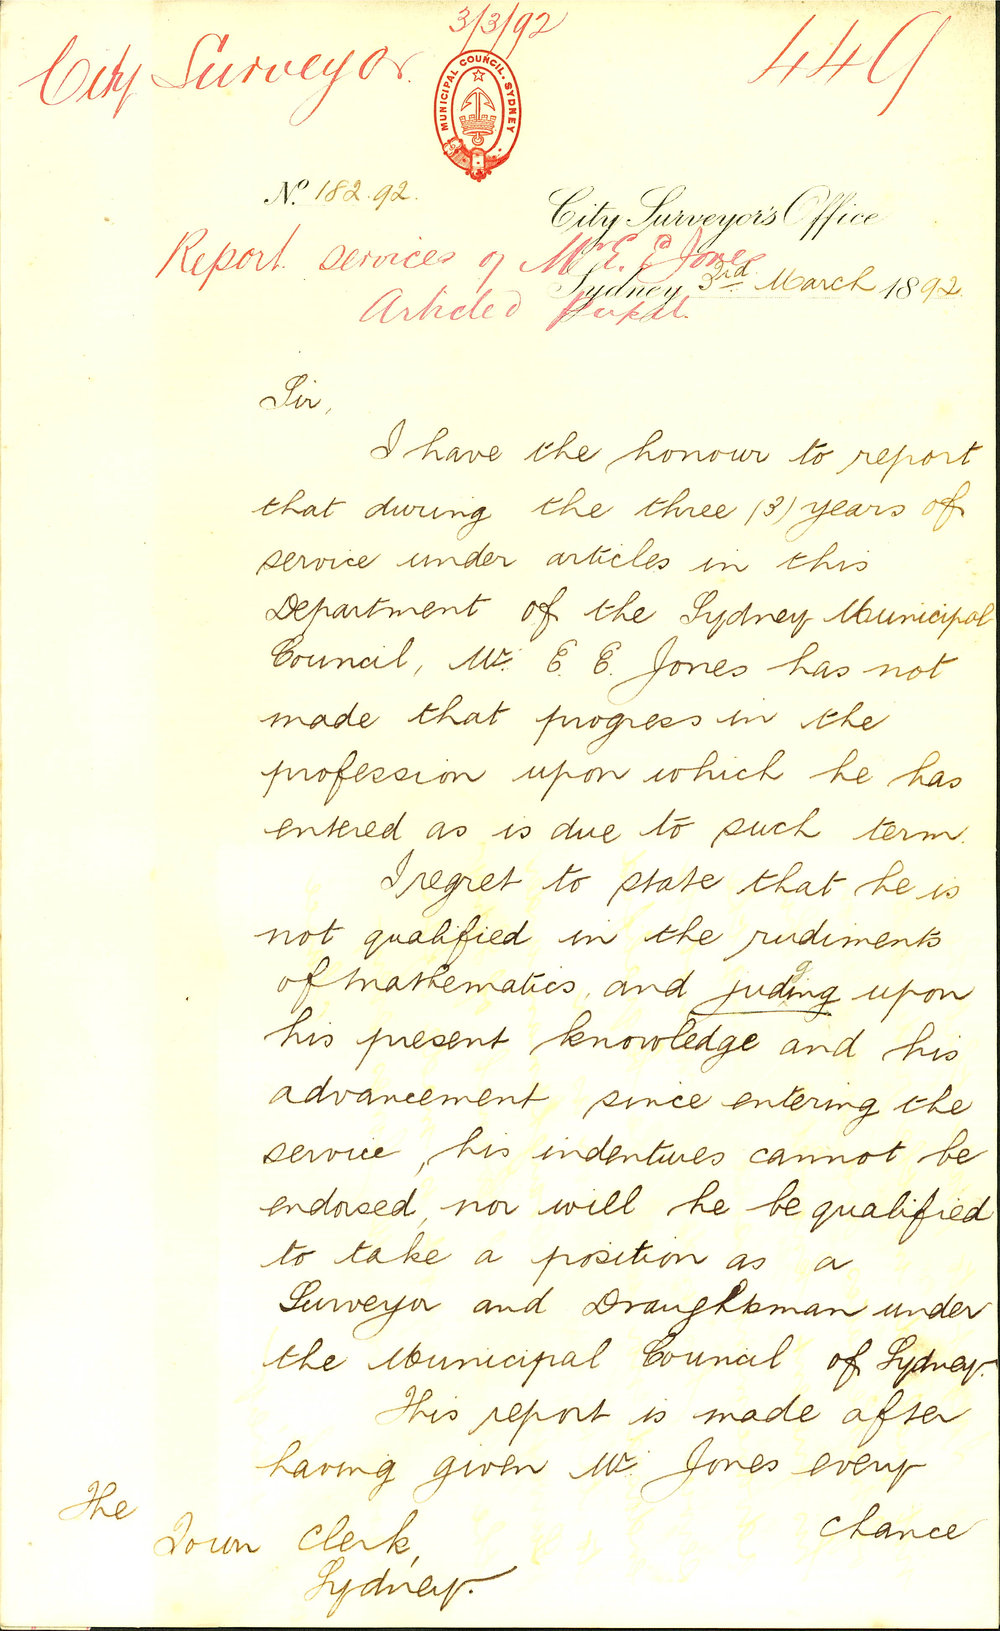 3/3/92
City Surveyor.
449
MUNICIPAL COUNCIL. SYDNEY
No. 182.92.
City Surveyor's Office
Report services of Mr E. E Jones
Sydney 3rd March 1892
Articled Pupil.
Sir,
I have the honour to report
that during the three (3) years of
service under articles in this
Department of the Sydney Municipal
Council, Mr. E. E. Jones has not
made that progress in the
profession upon which he has
entered as is due to such term.
I regret to state that he is
not qualified in the rudiments
of Mathematics, and judging upon
his present knowledge and his
advancement since entering the
service, his indentures cannot be
endorsed, nor will he be qualified
to take a position as a
Surveyor and Draughtsman under
the Municipal Council of Sydney.
This report is made after
having given Mr. Jones every
chance
The
Town Clerk,
Sydney.